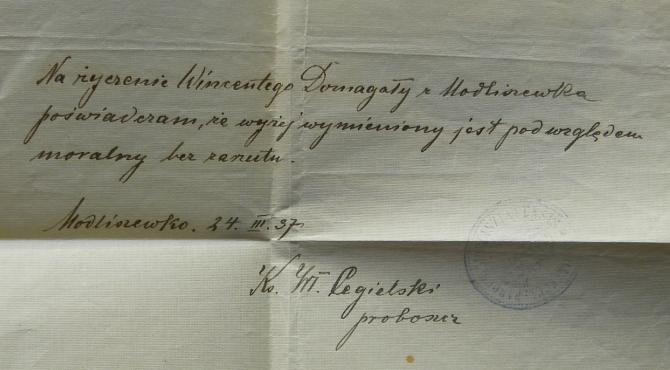 Na życzenie Wincentego Domagały z Modliszewka
poświadczam, że wyżej wymieniony jest pod względem
moralny bez zarzutu.
Modliszewko. 24. III. 37.
Ks. Wł. Cegielski
proboszcz